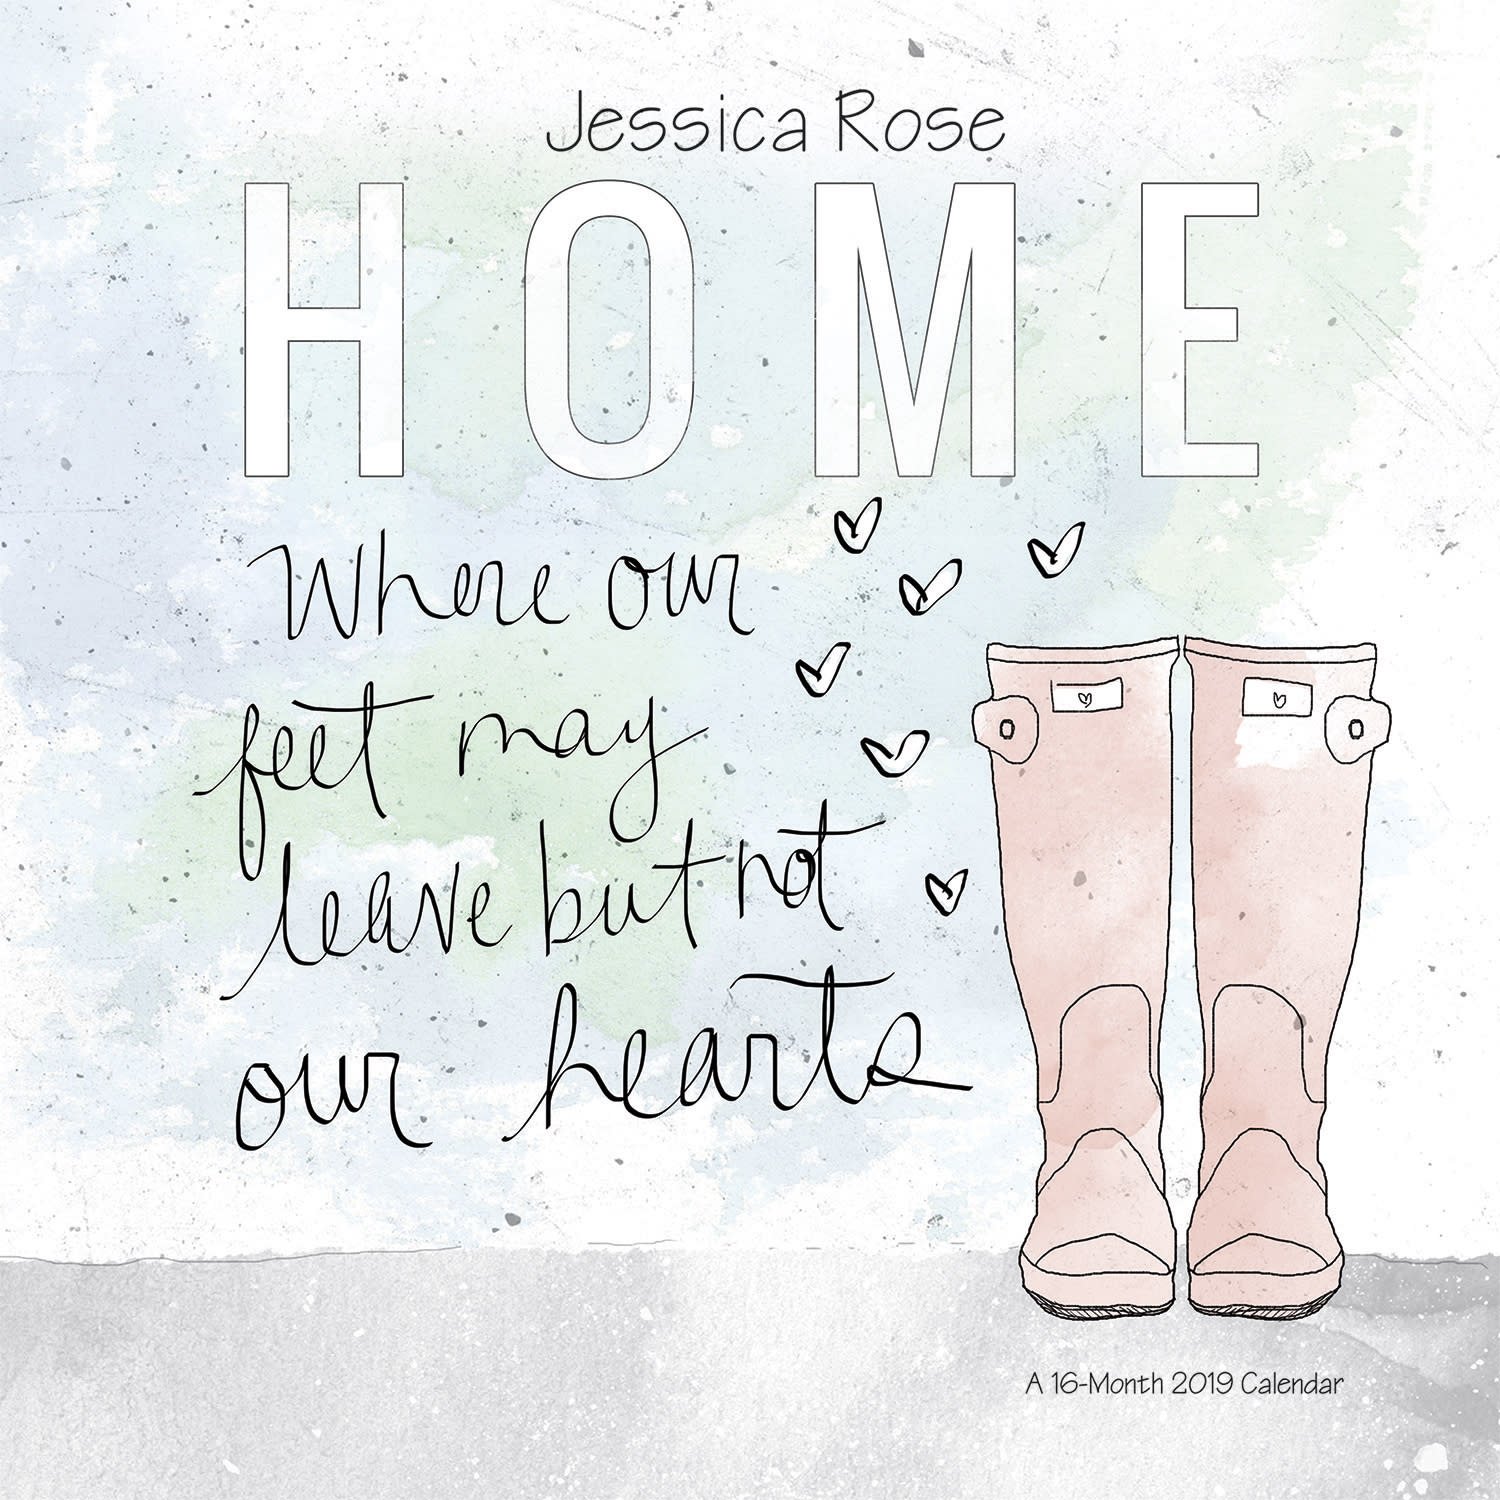 Jessica Rose
HOME
Where our
feet may
leave but not
our hearts
A 16-Month 2019 Calendar